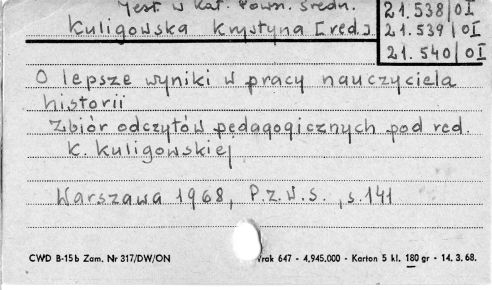 Jest w kat. Pown. średn.
Kuligowska Krystyna [red.]
21.538/OI
21.529/OI
21.540/OI
O lepsze wyniki w pracy nauczyciela
historii
Zbiór odczytów pedagogicznych pod red.
K. Kuligowskiej
Warszawa 1968, P.Z.W.S., s. 141
CWD B-15b Zam. Nr 317/DW/ON
rak 647 - 4.945.000 - Karton 5 kl. 180 gr - 14.3.68.